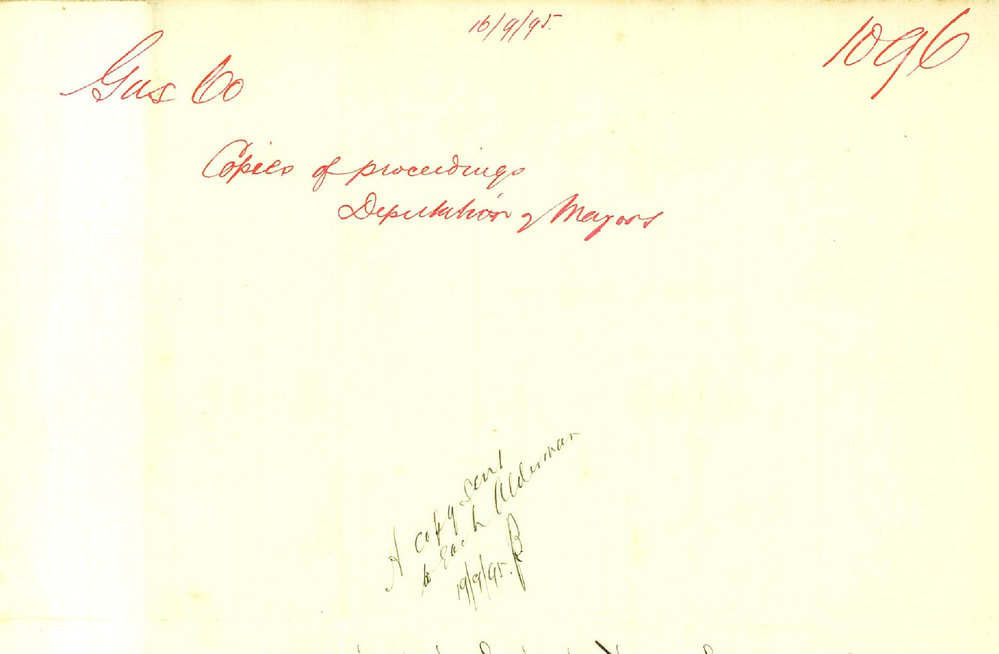 16/9/95.
1096
Gas Co
Copies of proceedings
Deputation of Mayors
A copy sent
to Each Alderman
19/9/95. B